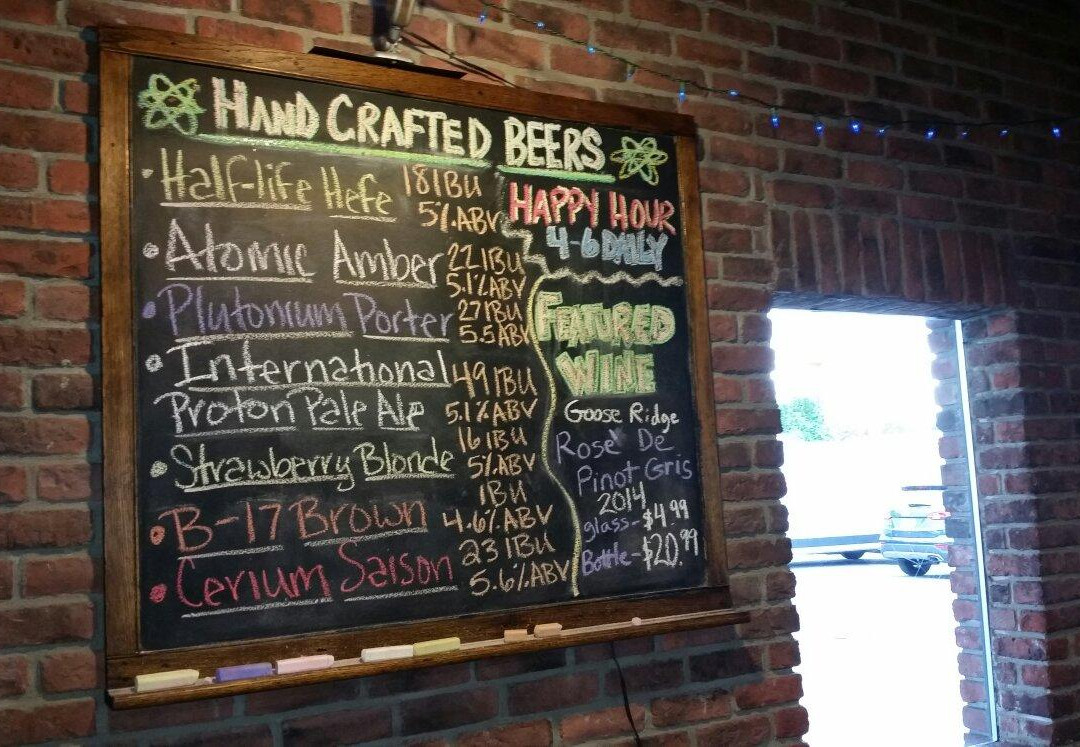 HAND CRAFTED BEERS
• Half-life Hefe 18 IBU
5% ABV
• Atomic Amber 22 IBU
5.1% ABV
• Plutonium Porter 27 IBU
5.5 ABV
• International 49 IBU
Proton Pale Ale 5.1% ABV
• Strawberry Blonde 16 IBU
5% ABV
• B-17 Brown IBU
4.6% ABV
• Cerium Saison 23 IBU
5.6% ABV
HAPPY HOUR
4-6 DAILY
FEATURED
WINE
Goose Ridge
Rosé De
Pinot Gris
2014
glass- $4.99
Bottle- $20.99